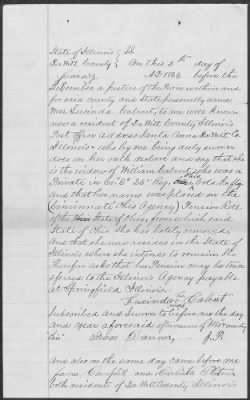 State of Illinois } SS
DeWitt County } On this 5th day of
January AD 1886 before the
subscriber a justice of the Peace within and
for said county and State personally came
Mrs. Lucinda Calvert to me well known
now a resident of DeWitt County, Illinois
Post office address Santa Anna DeWitt Co.
Illinois who by me being duly sworn
does on her oath declare and say that she
is the widow of William Calvert who was a
Private in Co. Reg. Ohio Vols Infty
And that her name was placed on the
Cincinnati Ohio (agency) Pension Roll
of the State of Ohio, from which said
State of Ohio She has lately removed,
And that she now resides in the State of
Illinois where she intends to remain. She
therefore asks that her Pension may be tran-
sferred to the Illinois agency payable
at Springfield Illinois.
Lucinda Calvert
mark
Subscribed And Sworn to before me the day
And year aforesaid
J. P.
And also on the same day came before me
James Campbell and
both residents of DeWitt County Illinois